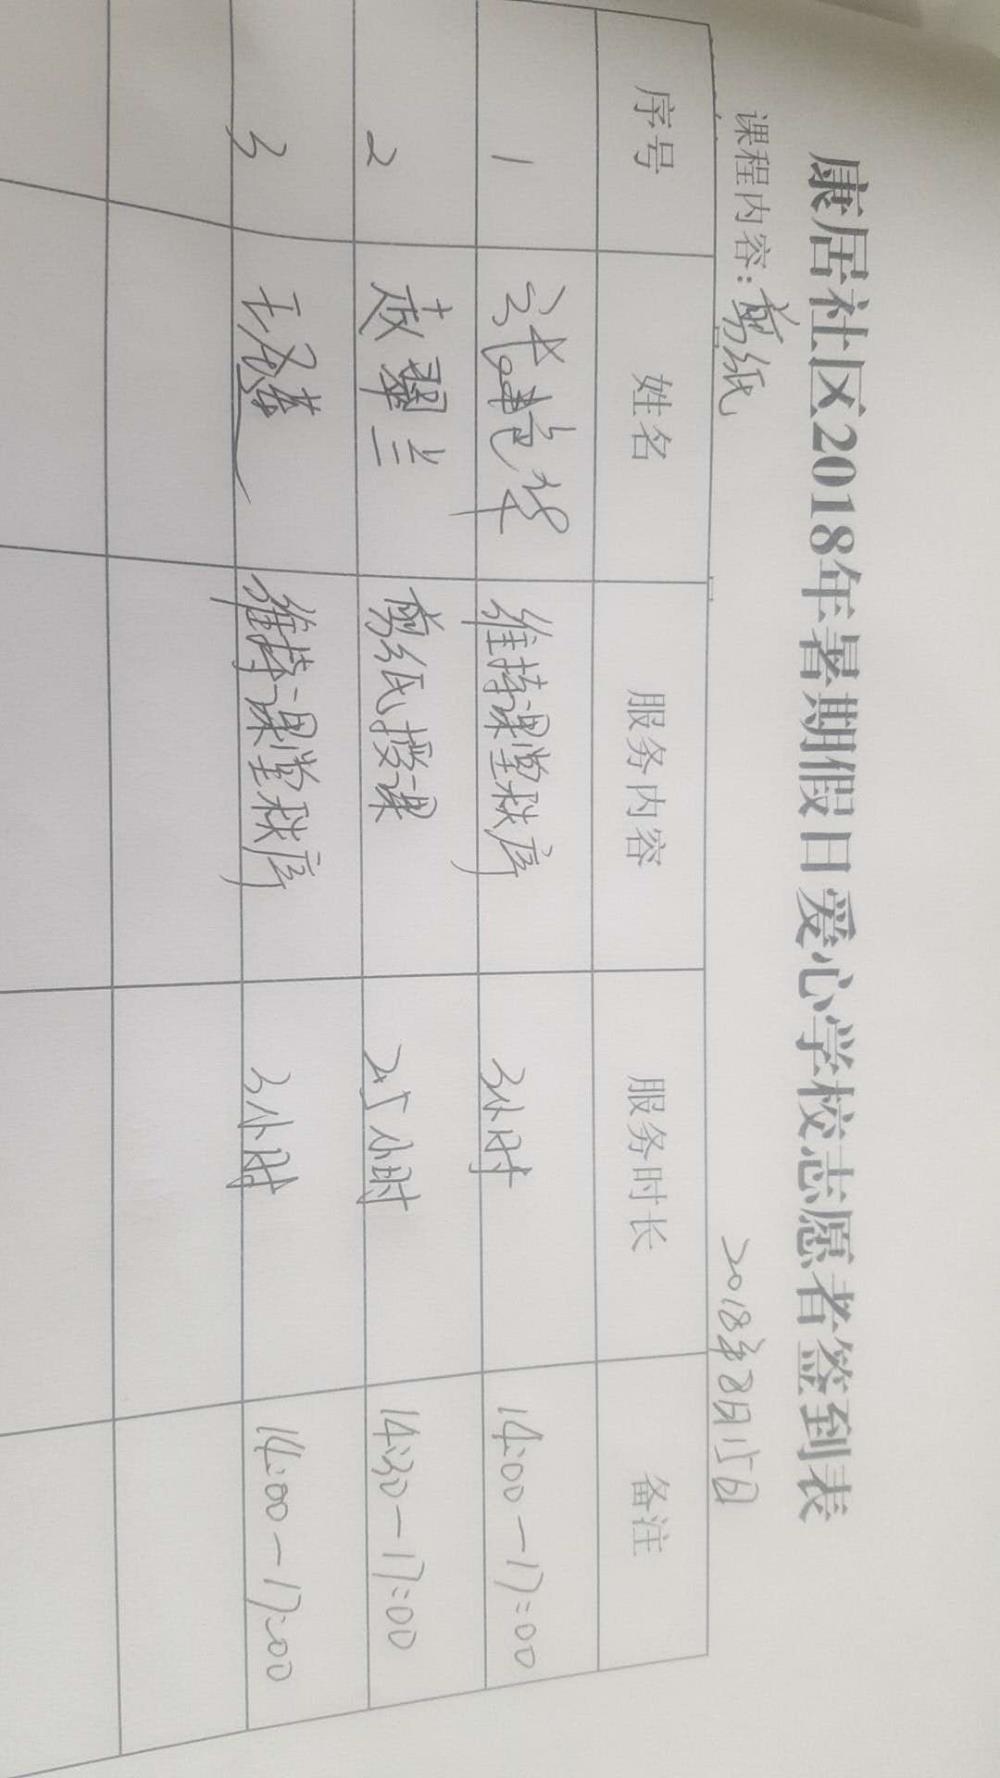 康居社区2018年暑期假日爱心学校志愿者签到表
课程内容：剪纸 2018年8月15日
序号 姓名 服务内容 服务时长 备注
1 维持课堂秩序 3小时 14:00—17:00
2 赵翠兰 剪纸授课 2.5小时 14:30—17:00
3 维持课堂秩序 3小时 14:00—17:00